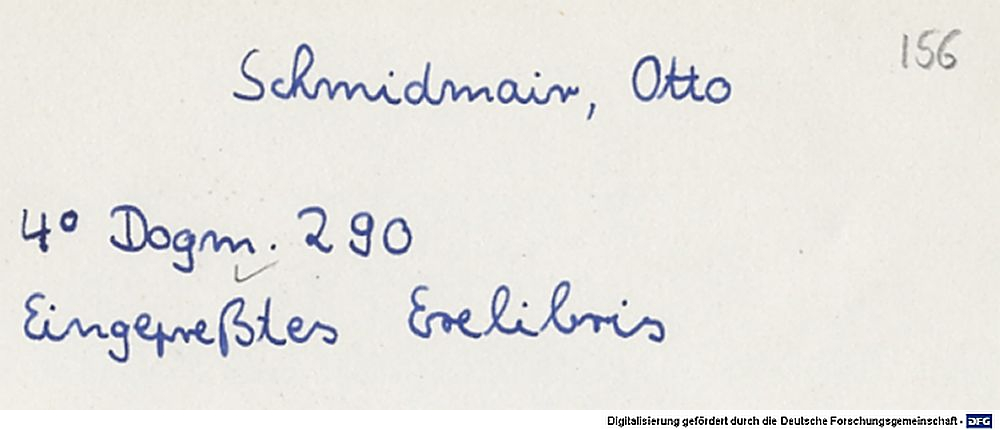 156
Schmidmair, Otto
4° Dogm. 290
Eingepreßtes Exelibris
Digitalisierung gefördert durch die Deutsche Forschungsgemeinschaft - DFG